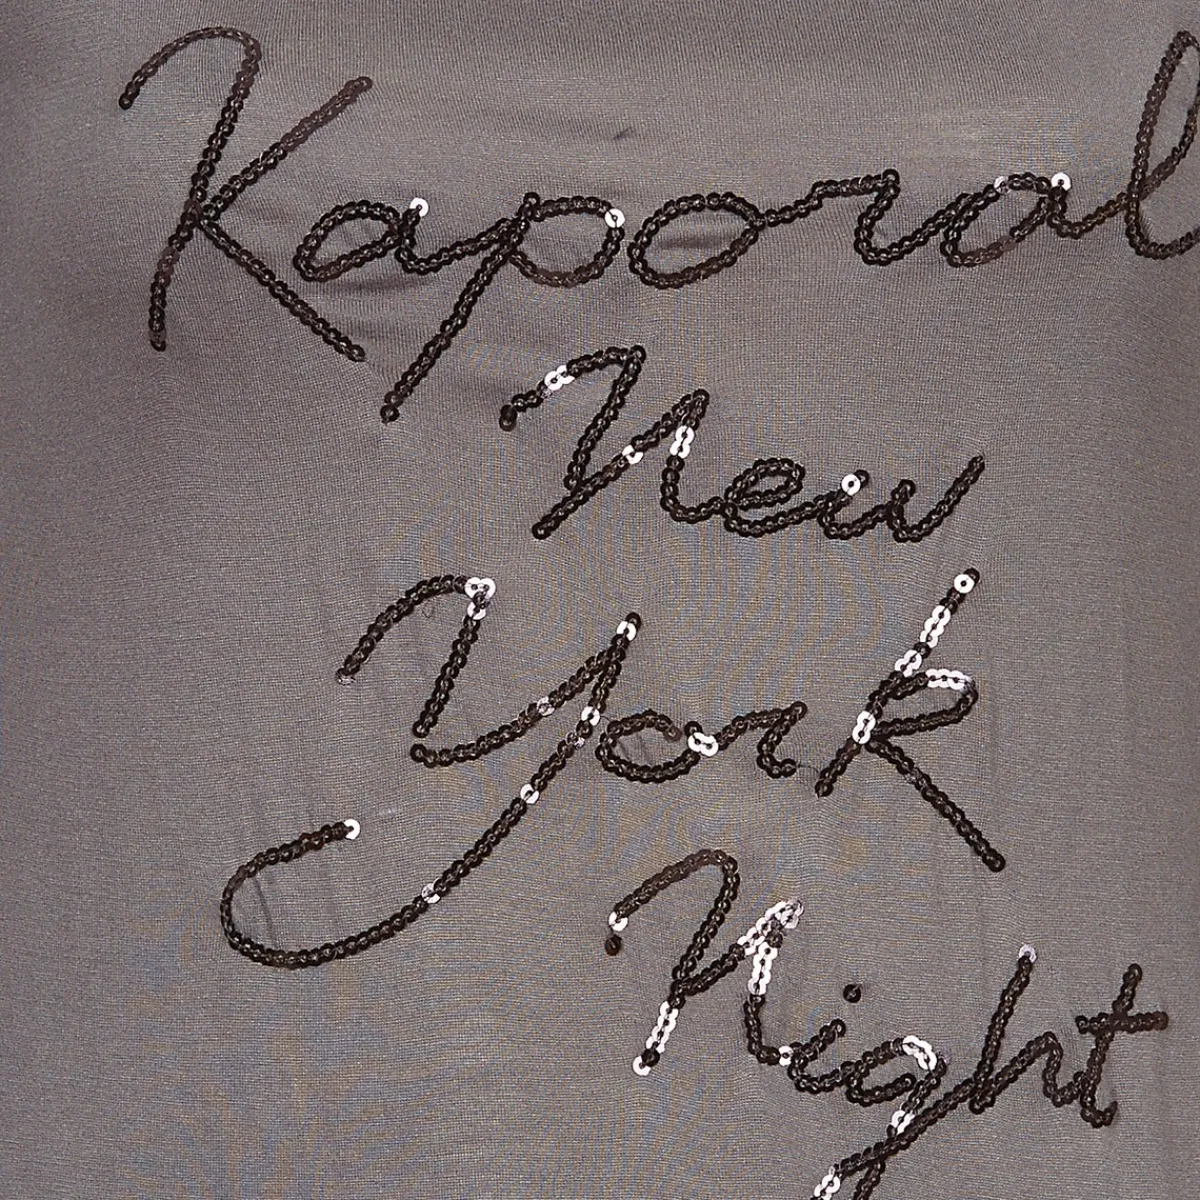 Kaporal
New
York
Night